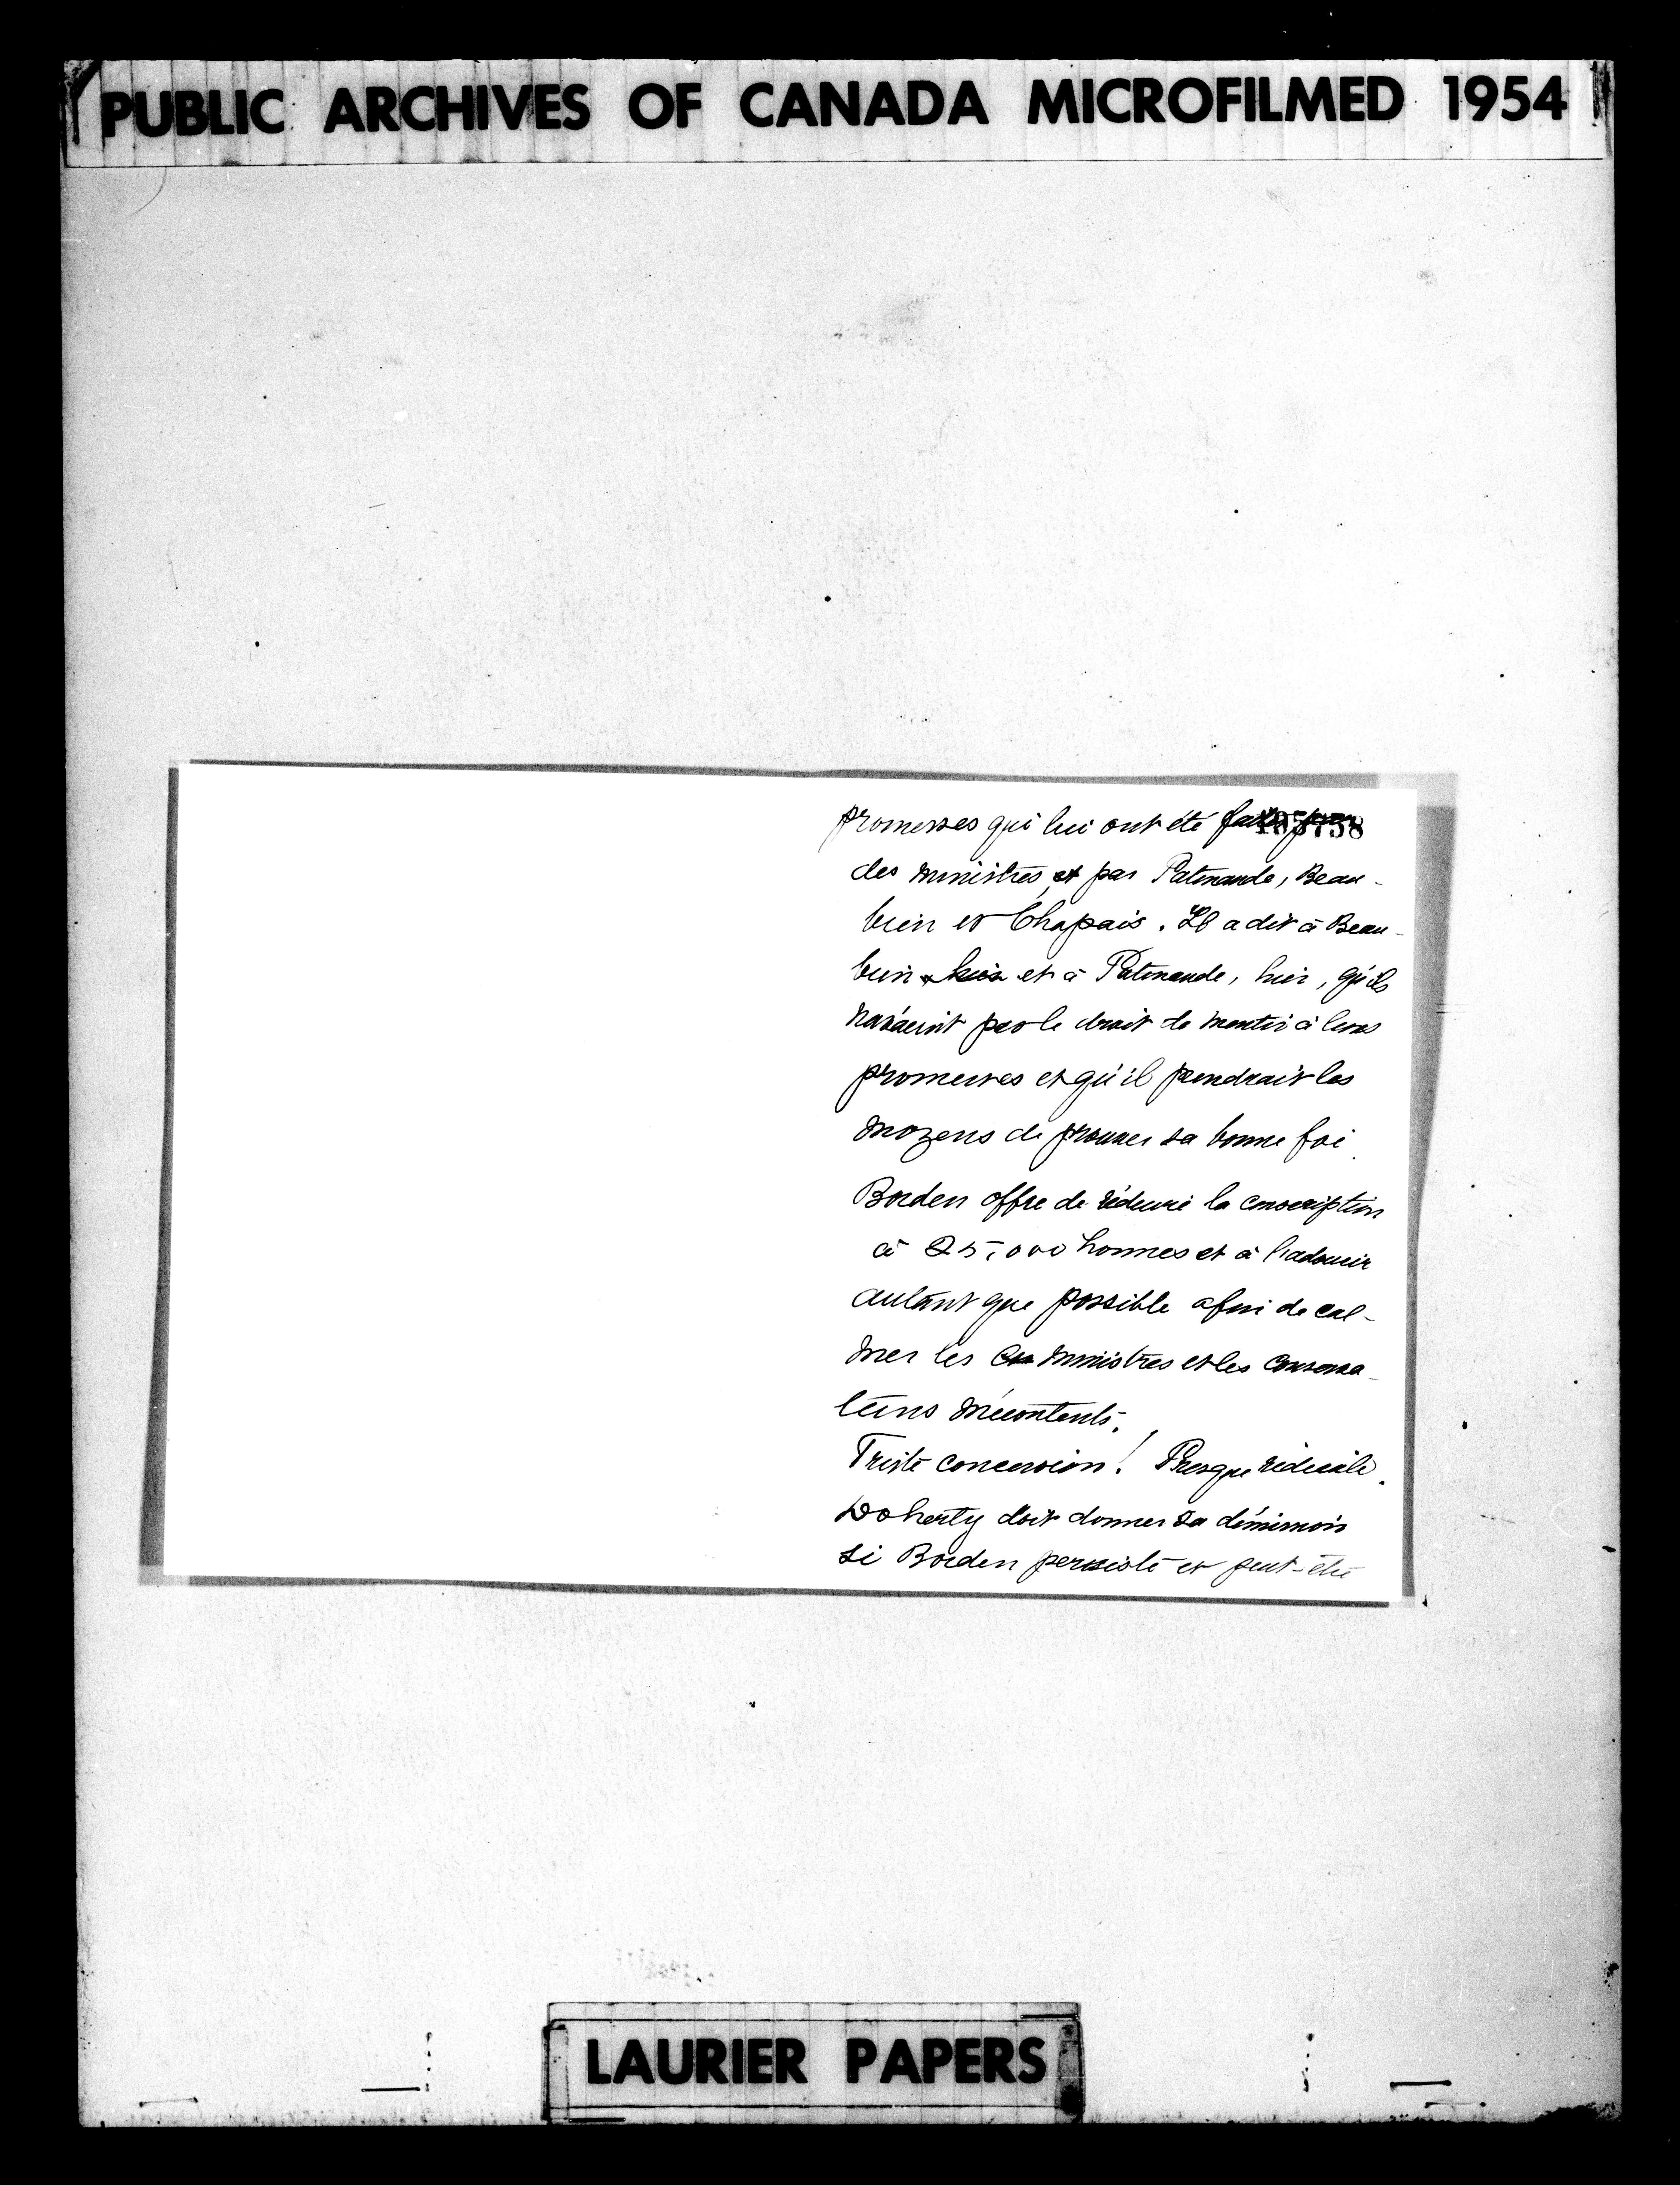 PUBLIC ARCHIVES OF CANADA MICROFILMED 1954
promesses qui lui ont été faites par
des ministres et par Patenaude, Beau-
bien et Chapais. Il a dit à Beau-
bien et à Patenaude, hier, qu'ils
n'avaient pas le droit de mentir à leurs
promesses et qu'il prendrait les
moyens de prouver sa bonne foi.
Borden offre de réduire la conscription
à 25,000 hommes et à l'adoucir
autant que possible afin de cal-
mer les ministres et les conserva-
teurs mécontents.
Triste concession! Presque ridicule.
Doherty doit donner sa démission
si Borden persiste et peut-être
LAURIER PAPERS